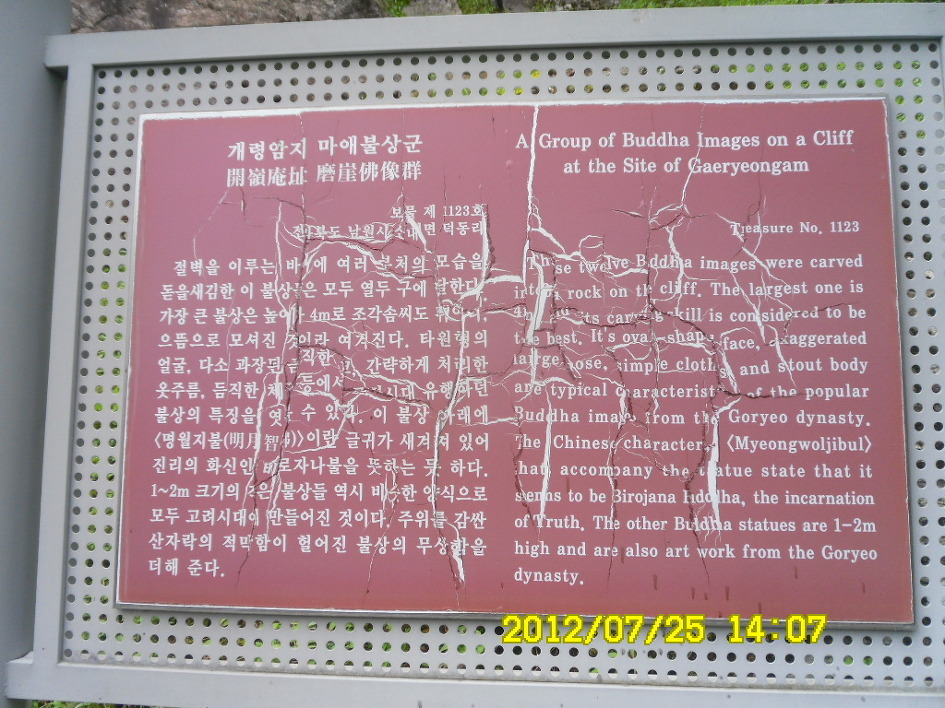 개령암지 마애불상군
開嶺庵址 磨崖佛像群
보물 제 1123호
남원시 덕동리
절벽을 이루는 바위에 여러 부처의 모습을
돋을새김한 이 불상군은 모두 열두 구에 달한다.
가장 큰 불상은 높이가 4m로 조각솜씨도
으뜸으로 모셔진 것이라 여겨진다. 타원형의
얼굴, 다소 과장된 간략하게 처리한
옷주름, 듬직한 유행하던
불상의 특징을 엿볼 수 있다. 이 불상 아래에
〈명월지불(明月智佛)〉이란 글귀가 새겨져 있어
진리의 화신인 비로자나불을 뜻하는 듯 하다.
1~2m 크기의 작은 불상들 역시 비슷한 양식으로
모두 고려시대에 만들어진 것이다. 주위를 감싼
산자락의 적막함이 헐어진 불상의 무상함을
더해 준다.
A Group of Buddha Images on a Cliff
at the Site of Gaeryeongam
Treasure No. 1123
These twelve Bddha images were carved
into rock on the cliff. The largest one is
4m its carving skill is considered to be
the best. It's oval shape face, exaggerated
large nose, simple cloths, and stout body
are typical characteristics of the popular
Buddha image from the Goryeo dynasty.
The Chinese characters 〈Myeongwoljibul〉
that accompany the statue state that it
seems to be Birojana Bddha, the incarnation
of Truth. The other Buddha statues are 1-2m
high and are also art work from the Goryeo
dynasty.
2012/07/25 14:07